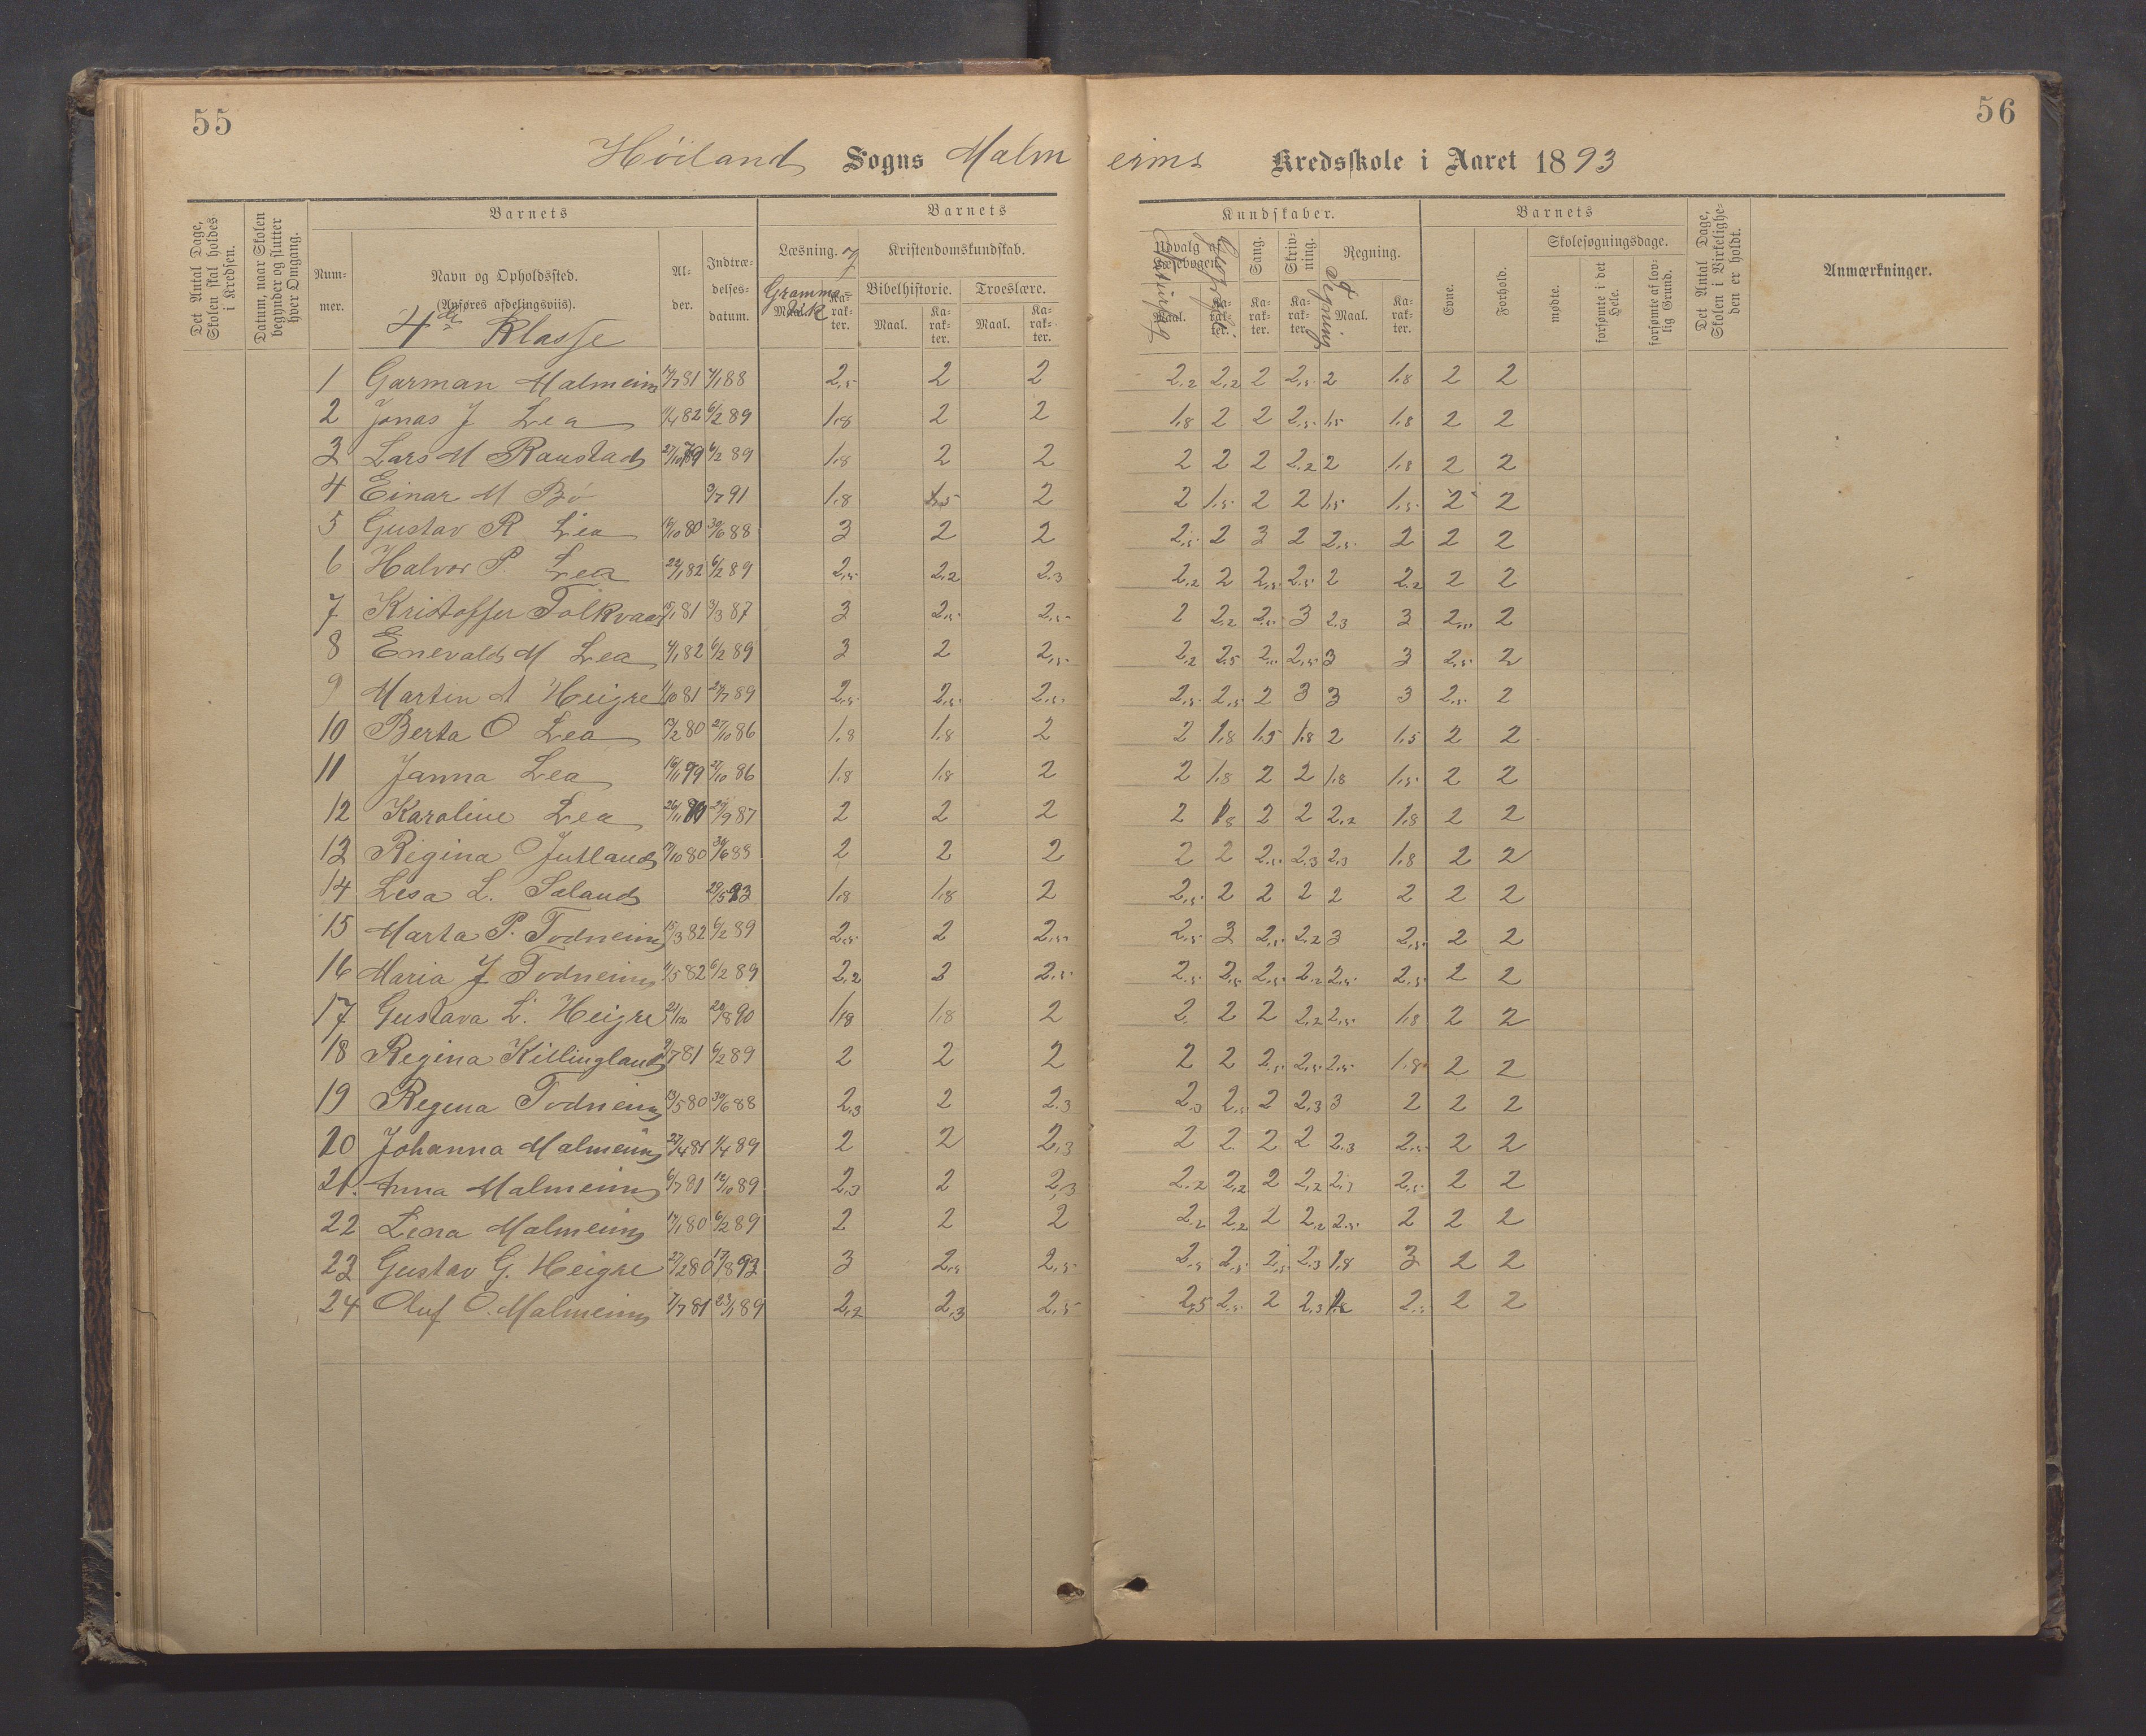 55
56
Höiland Sogns Malm eims Kredsskole i Aaret 1893
Det Antal Dage, Skolen skal holdes i Kredsen.
Datum, naar Skolen begynder og slutter hver Omgang.
Barnets
Num-mer.
Navn og Opholdssted.
(Anføres afdelingsviis).
4de Klasse
Al-der.
Indtræ-delses-datum.
Barnets
Læsning. og
Gramma-tik
Maal. Ka-rak-ter.
Kristendomskundskab.
Bibelhistorie. Troeslære.
Maal. Ka-rak-ter. Maal. Ka-rak-ter.
Kundskaber.
Udvalg af Læsebogen.
Maal. Ka-rak-ter.
Sang. Ka-rak-ter.
Skriv-ning. Ka-rak-ter.
Regning.
Tegning
Maal. Ka-rak-ter.
Barnets
Evne. Forhold.
Skolesøgningsdage.
mødte. forsømte i det Hele. forsømte af lov-lig Grund.
Det Antal Dage, Skolen i Virkelighe-den er holdt.
Anmærkninger.
1 Garman Malmeim 81 88 2,5 2 2 2,2 2,2 2 2,5 2 1,8 2 2
2 Jonas J Lea 82 6/2 89 1,8 2 2 1,8 2 2 2,5 1,5 1,8 2 2
3 Lars M Raustad 6/2 89 1,8 2 2 2 2 2 2,2 2 1,8 2 2
4 Einar M Bö 3/7 91 1,8 1,5 2 2 1,5 2 2 1,5 1,5 2 2
5 Gustav R Lea 80 30/6 88 3 2 2 2,5 2 3 2 2,5 2 2 2
6 Halvor P. Lea 82 6/2 89 2,5 2,2 2,3 2,2 2 2,5 2,5 2 2,2 2 2
7 Kristoffer Tolkvam 81 3/3 87 3 2,5 2,5 2 2,2 2,5 3 2,3 3 2,5 2
8 Enevald M Lea 82 6/2 89 3 2 2,5 2,2 2,5 2,5 2,5 3 3 2,5 2
9 Martin A Heigre 81 89 2,5 2,5 2,5 2,5 2,5 2 3 3 3 2,5 2
10 Berta O Lea 80 27/10 86 1,8 1,8 2 2 1,8 1,5 1,8 2 1,5 2 2
11 Janna Lea 27/10 86 1,8 1,8 2 2 1,8 2 2 1,8 1,5 2 2
12 Karoline Lea 87 2 2 2 2 1,8 2 2 2,2 1,8 2 2
13 Regina O Jutland 80 30/6 88 2 2 2 2 2 2,5 2,3 2,3 1,8 2 2
14 Lesa L. Soland 29/5 93 1,8 1,8 2 2,5 2 2 2 2 2 2 2
15 Marta P. Todneim 15/3 82 6/2 89 2,5 2 2,5 2,5 3 2,5 2,2 3 2,5 2 2
16 Maria J Todneim 82 6/2 89 2,2 2 2,5 2,5 2,5 2,5 2,2 2,5 2,5 2 2
17 Gustava L. Heigre 21/12 90 1,8 1,8 2 2 2 2 2,2 2,5 1,8 2 2
18 Regina Killingland 81 6/2 89 2 2 2 2 2 2,5 2,5 2,5 1,8 2 2
19 Regina Todneim 13/5 80 30/6 88 2,3 2 2,3 2,3 2,5 2 2,3 3 2 2 2
20 Johanna Malmeim 81 89 2 2 2,3 2 2 2 2 2,3 2,5 2 2
21. Anna Malmeim 81 89 2,3 2 2,3 2,2 2,2 2 2,2 2,5 2 2
22 Lena Malmeim 80 6/2 89 2 2 2 2,2 2,2 2 2,2 2,5 2 2 2
23 Gustav G. Heigre 27/2 80 93 3 2,5 2,5 2,5 2,5 2,5 2,3 1,8 3 2 2
24 Oluf O. Malmeim 7/7 81 89 2,2 2,3 2,5 2,5 2,5 2 2,3 1,8 2,5 2 2